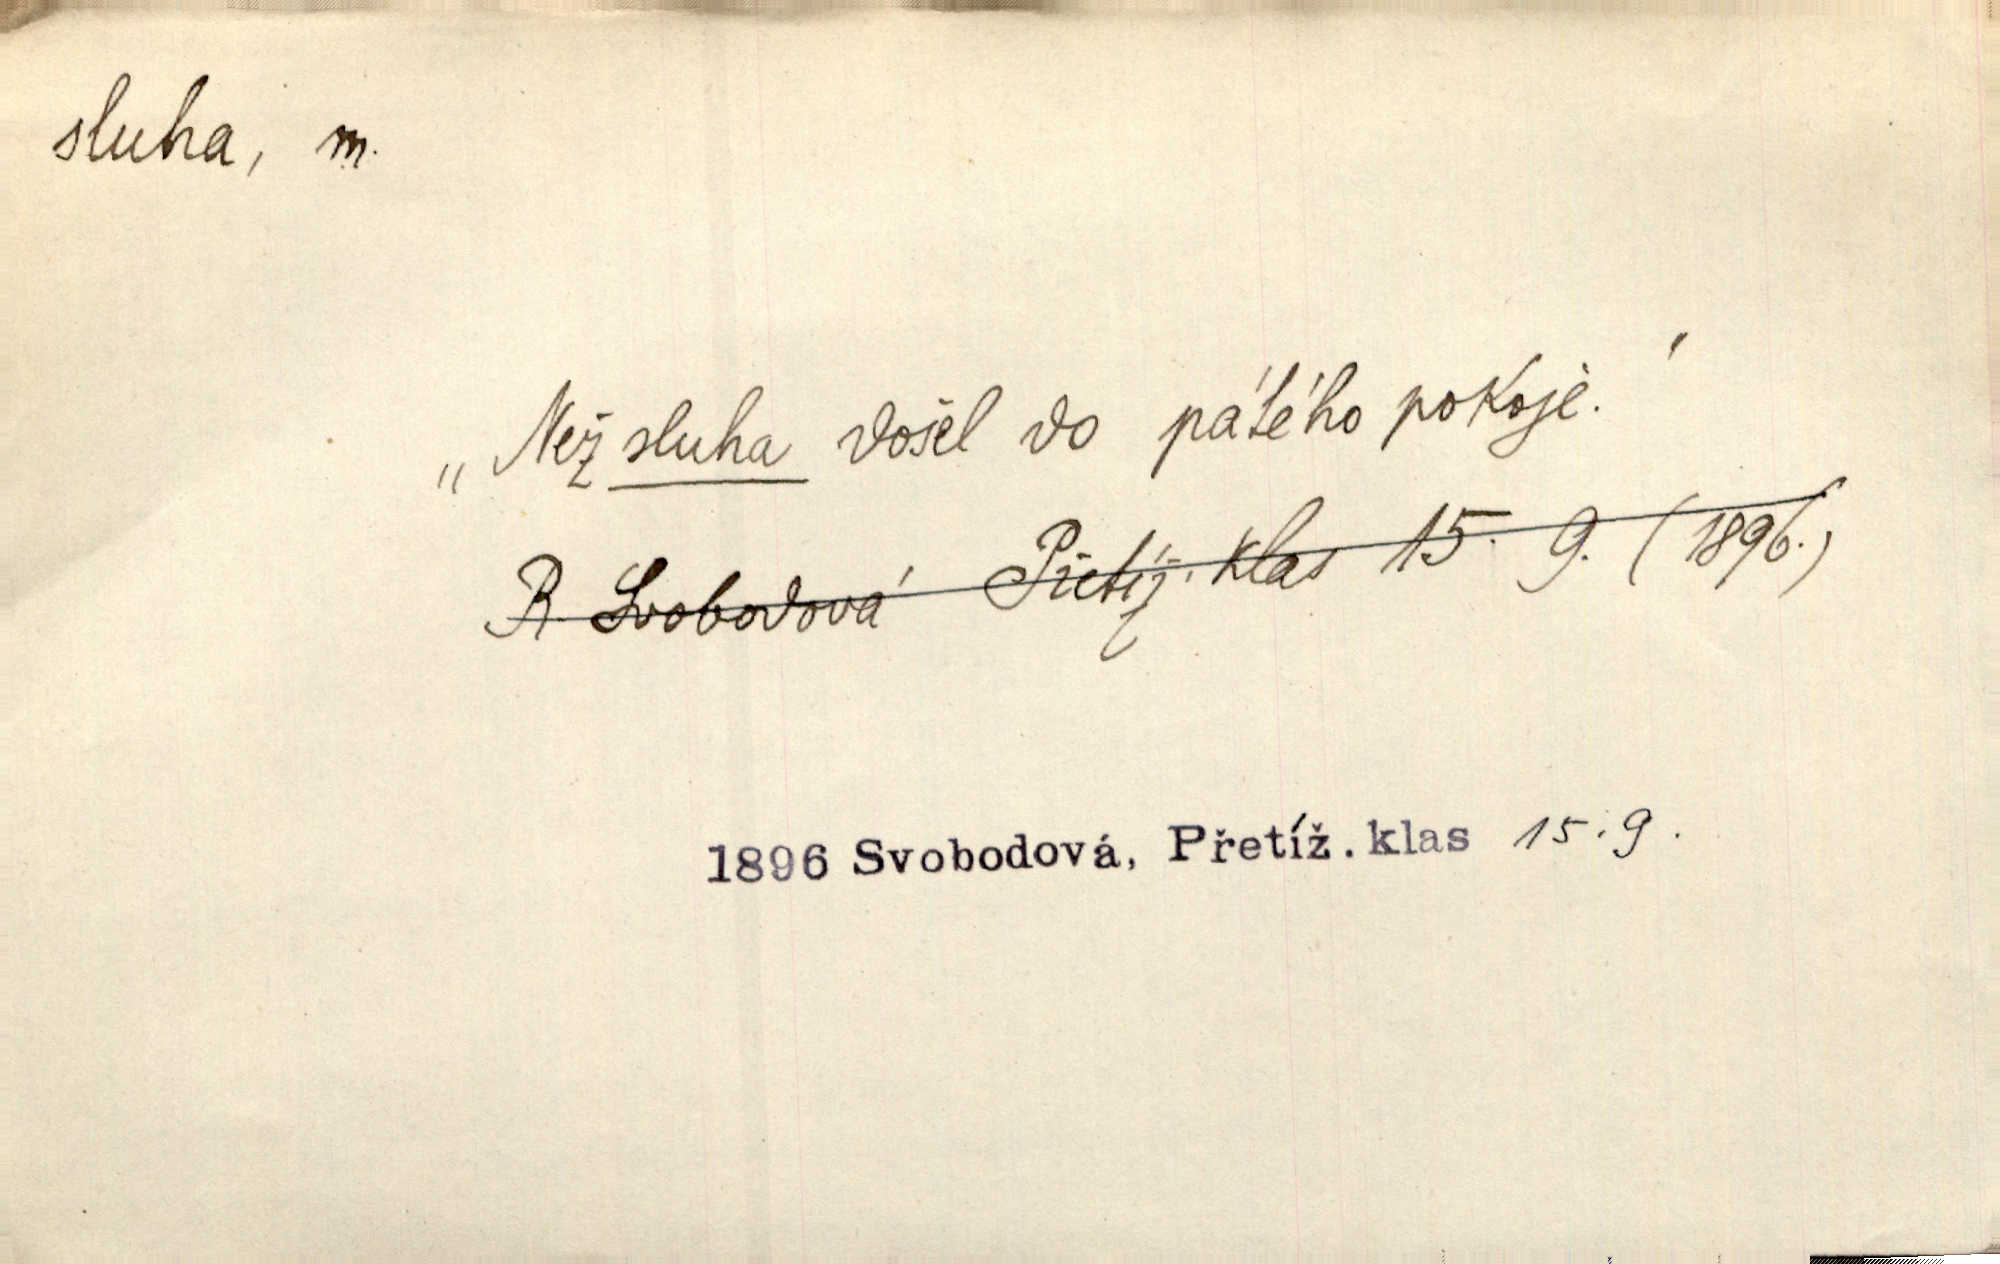 sluha, m.
„Než sluha došel do pátého pokoje."
R. Svobodová Přetíž. klas 15. 9. (1896.)
1896 Svobodová, Přetíž. klas 15. 9.